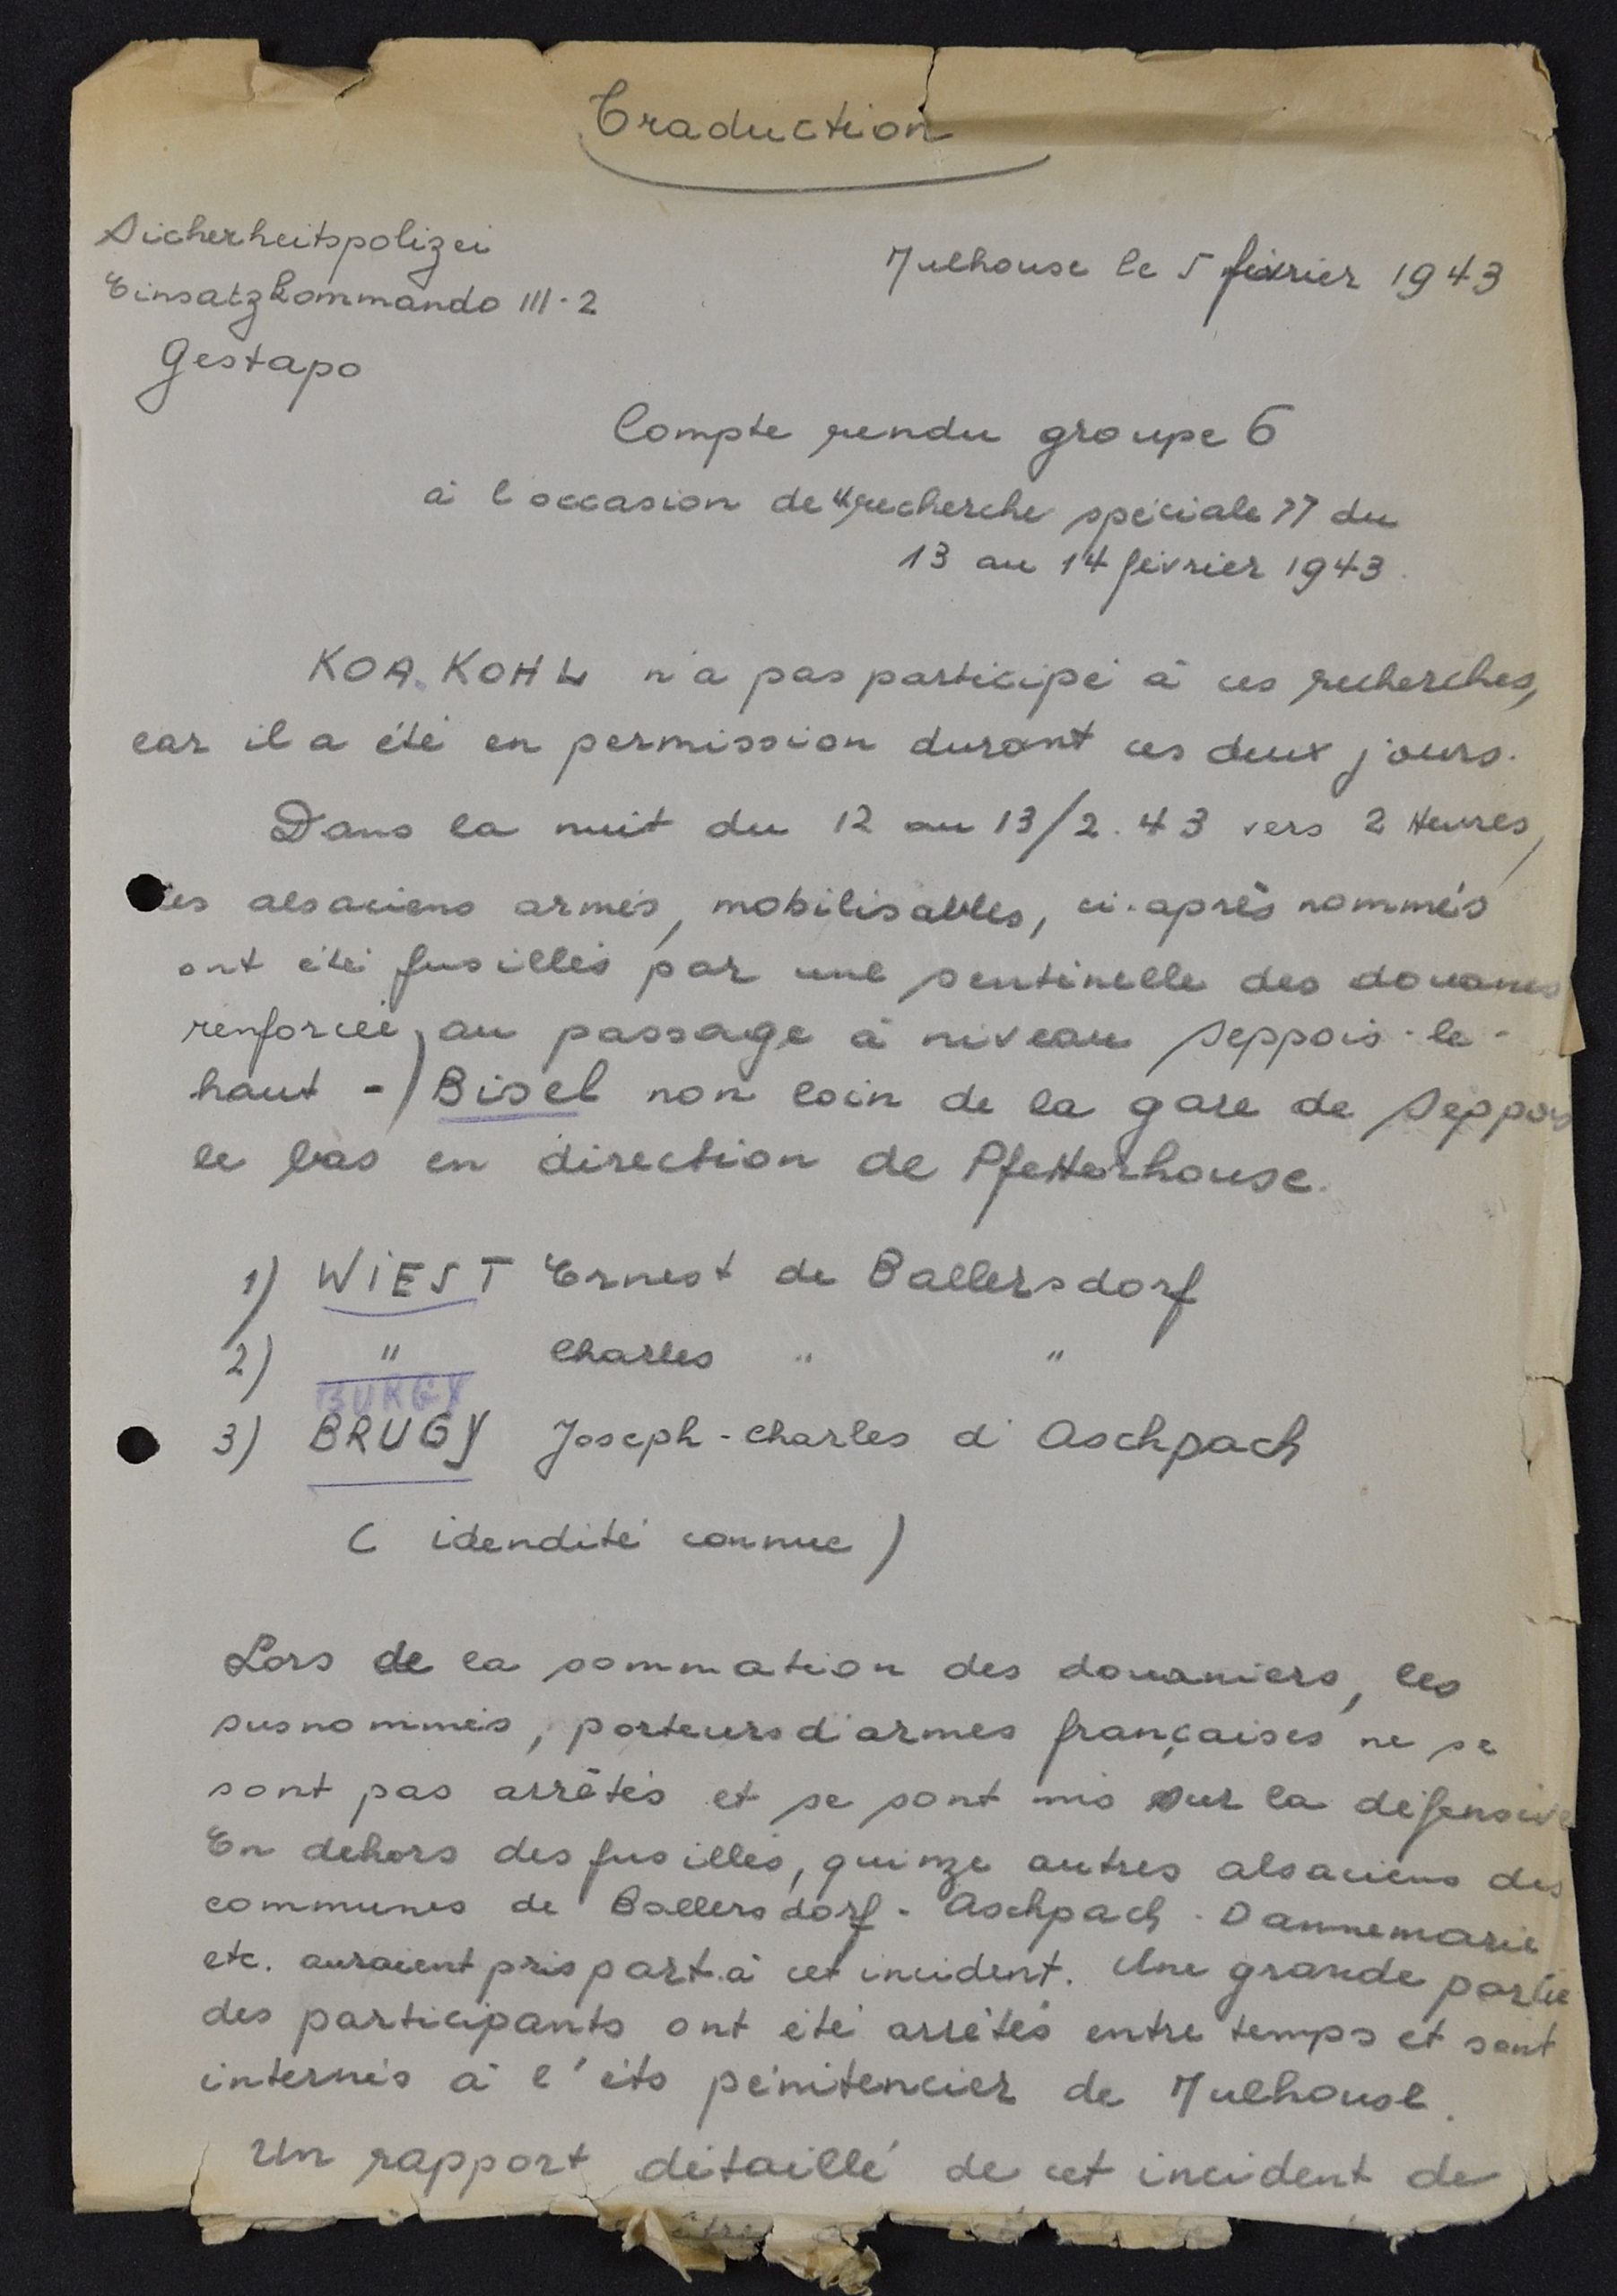 Traduction
Sicherheitspolizei
Einsatzkommando III-2
Gestapo
Mulhouse le 5 février 1943
Compte rendu groupe 6
à l'occasion de "recherche spéciale" du
13 au 14 février 1943.
KOA. KOHL n'a pas participé à ces recherches,
car il a été en permission durant ces deux jours.
Dans la nuit du 12 au 13/2.43 vers 2 Heures,
les alsaciens armés, mobilisables, ci-après nommés
ont été fusillés par une sentinelle des douanes
renforcée, au passage à niveau Seppois-le-
haut -) Bisel non loin de la gare de Seppois
le bas en direction de Pfetterhouse.
1) WIEST Ernest de Ballersdorf
2) " Charles " "
BURGY
3) BRUGY Joseph-Charles d'Aschpach
( idendité connue )
Lors de la sommation des douaniers, les
susnommés, porteurs d'armes françaises ne se
sont pas arrêtés et se sont mis sur la défensive
En dehors des fusillés, quinze autres alsaciens des
communes de Ballersdorf - Aschpach - Dannemarie
etc. auraient pris part à cet incident. Une grande partie
des participants ont été arrêtés entre temps et sont
internés à l'éts pénitencier de Mulhouse.
Un rapport détaillé de cet incident de